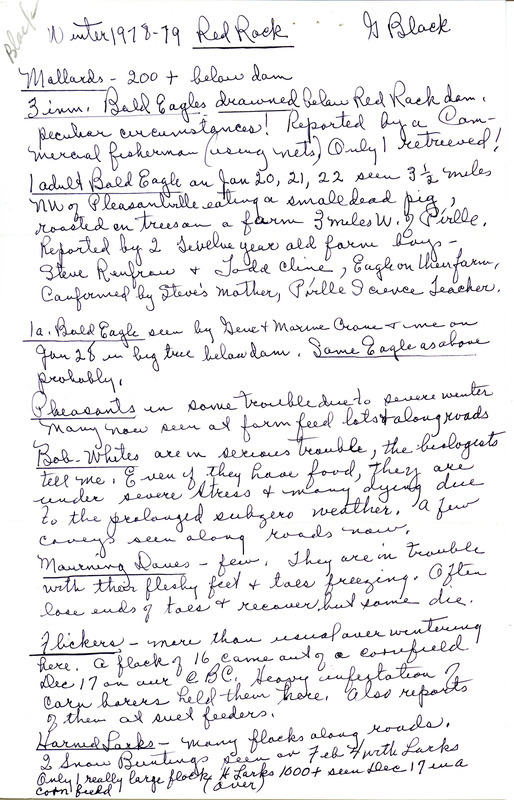 Black
Winter 1978-79 Red Rock G Black
Mallards - 200 + below dam
3 imm. Bald Eagles drowned below Red Rock dam.
peculiar circumstances! Reported by a Com-
mercial fisherman (using nets) Only 1 retrieved!
1 adult Bald Eagle on Jan 20, 21, 22 seen 3 1/2 miles
NW of Pleasantville eating a small dead pig,
roosted on trees on a farm 3 miles W. of P'ville.
Reported by 2 Twelve year old farm boys -
Steve Renfrow + Todd Cline, Eagle on their farm,
Confirmed by Steve's mother, P'ville Science Teacher.
1 a. Bald Eagle seen by Gene + Marine Crane + me on
Jan 28 in big tree below dam. Same Eagle as above
probably.
Pheasants in some trouble due to severe winter
Many now seen at farm feed lots + along roads
Bob-Whites are in serious trouble, the biologists
tell me. Even if they have food, they are
under severe stress + many dying due
to the prolonged subzero weather. A few
coveys seen along roads now.
Mourning Doves - few. They are in trouble
with their fleshy feet + toes freezing. Often
lose ends of toes + recover, but some die.
Flickers - more than usual over wintering
here. A flock of 16 came out of a cornfield
Dec 17 on our CBC. Heavy infestation of
corn borers held them there. Also reports
of them at suet feeders.
Horned Larks - Many flocks along roads.
2 Snow Buntings seen on Feb 4 with Larks
Only 1 really large flock (H Larks 1000+ seen Dec 17 in a
corn field (over)